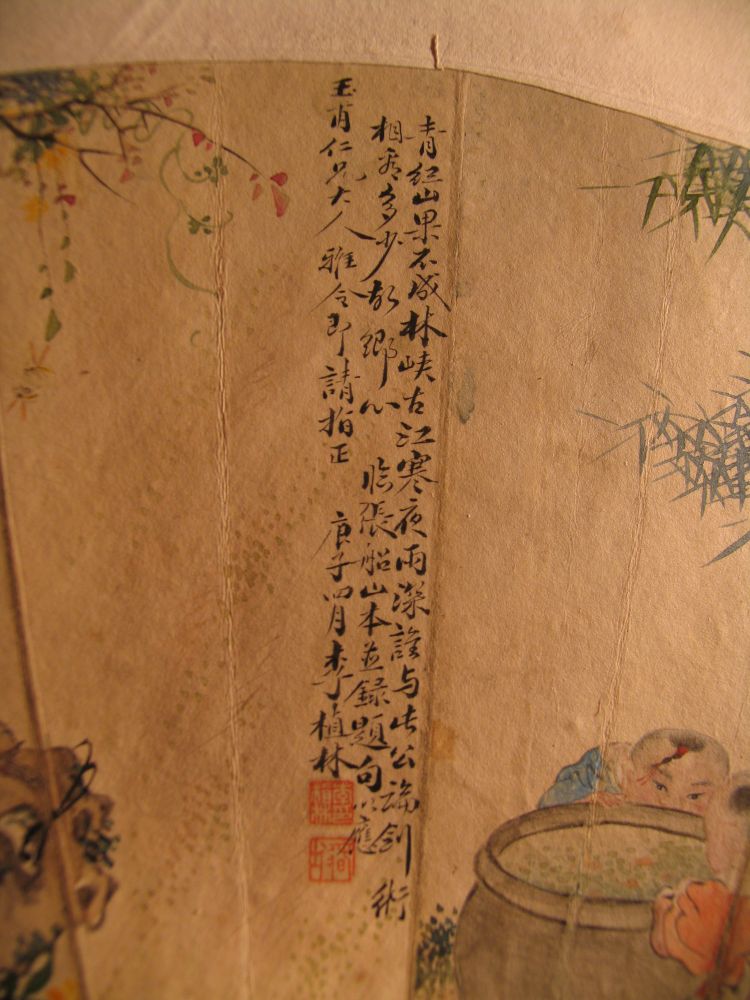 青紅山果不成林峡古江寒夜雨深誰与此公論劍術
相看多少故鄉心 臨張船山本並録題句以應
玉甫仁兄大人雅令即請指正 庚子四月李植林